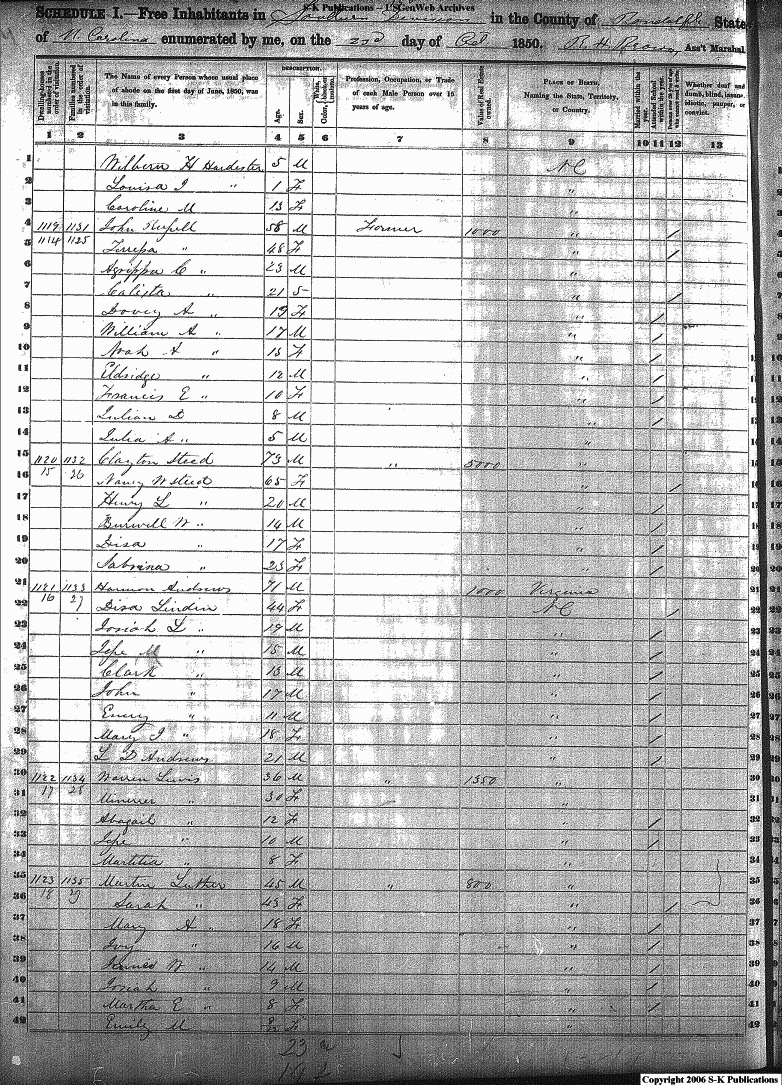 S-K Publications – USGenWeb Archives
SCHEDULE I.—Free Inhabitants in Southern Division in the County of Randolph State
of N. Carolina enumerated by me, on the 22d day of Oct 1850. Ass't Marshal
Dwelling-houses numbered in the order of visitation.
Families numbered in the order of visitation.
The Name of every Person whose usual place of abode on the first day of June, 1850, was in this family.
DESCRIPTION.
Age.
Sex.
Color, White, black, or mulatto.
Profession, Occupation, or Trade of each Male Person over 15 years of age.
Value of Real Estate owned.
PLACE OF BIRTH, Naming the State, Territory, or Country.
Married within the year.
Attended School within the year.
Persons over 20 y'rs of age who cannot read & write.
Whether deaf and dumb, blind, insane, idiotic, pauper, or convict.
1 2 3 4 5 6 7 8 9 10 11 12 13
1 Wilbern H Hardester 5 M NC
2 Louisa J " 1 F "
3 Caroline M 13 F "
4 1119 1131 John 58 M Farmer 1000 " /
5 1114 1125 " 48 F " /
6 Agrippa C " 23 M "
7 Calista " 21 " /
8 Dovey A " 19 F " /
9 William A " 17 M " /
10 Noah A " 13 F " /
11 Eldridge " 12 M " /
12 Francis E " 10 F " /
13 Julian D 8 M " /
14 Julia A " 5 M "
15 1120 15 1132 26 Clayton Steed 73 M " 5000 "
16 Nancy W Steed 65 F " /
17 Henry L " 20 M " /
18 Burwell W " 14 M " /
19 Disa " 17 F " /
20 Sabrina " 23 F " /
21 1121 16 1133 27 Harmon Andrews 71 M 1000 Virginia
22 Disa 44 F NC /
23 Josiah L " 19 M " /
24 M " 15 M " /
25 Clark " 13 M " /
26 John " 17 M " /
27 Emery " 11 M " /
28 Mary J " 18 F " /
29 L D Andrews 21 M " /
30 1122 17 1134 28 Warren Lewis 36 M " 1350 "
31 " 30 F "
32 Abagail " 12 F " /
33 " 10 M " /
34 Martitia " 8 F "
35 1123 18 1135 29 Martin Luther 45 M " 800 "
36 Sarah " 43 F " /
37 Mary A " 18 F " /
38 Ivy " 16 M " /
39 W " 14 M " /
40 Josiah " 9 M " /
41 Martha E " 8 F " /
42 Emily M F "
23
19
Copyright 2006 S-K Publications